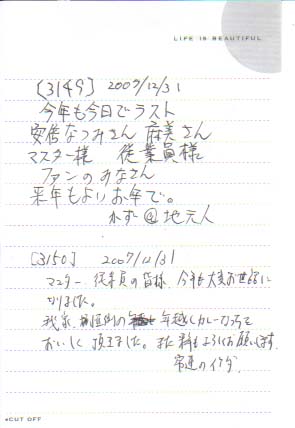 LIFE IS BEAUTIFUL
[3149] 2007/12/31
今年も今日でラスト
安倍なつみさん 麻美さん
マスター様 従業員様
ファンのみなさん
来年もよいお年で。
かず@地元人
[3150] 2007/12/31
マスター、従業員の皆様、今年も大変お世話に
なりました。
我家 の 年越しカレー
おいしく頂きました。また来年もよろしくお願いします。
常連のイケダ
CUT OFF